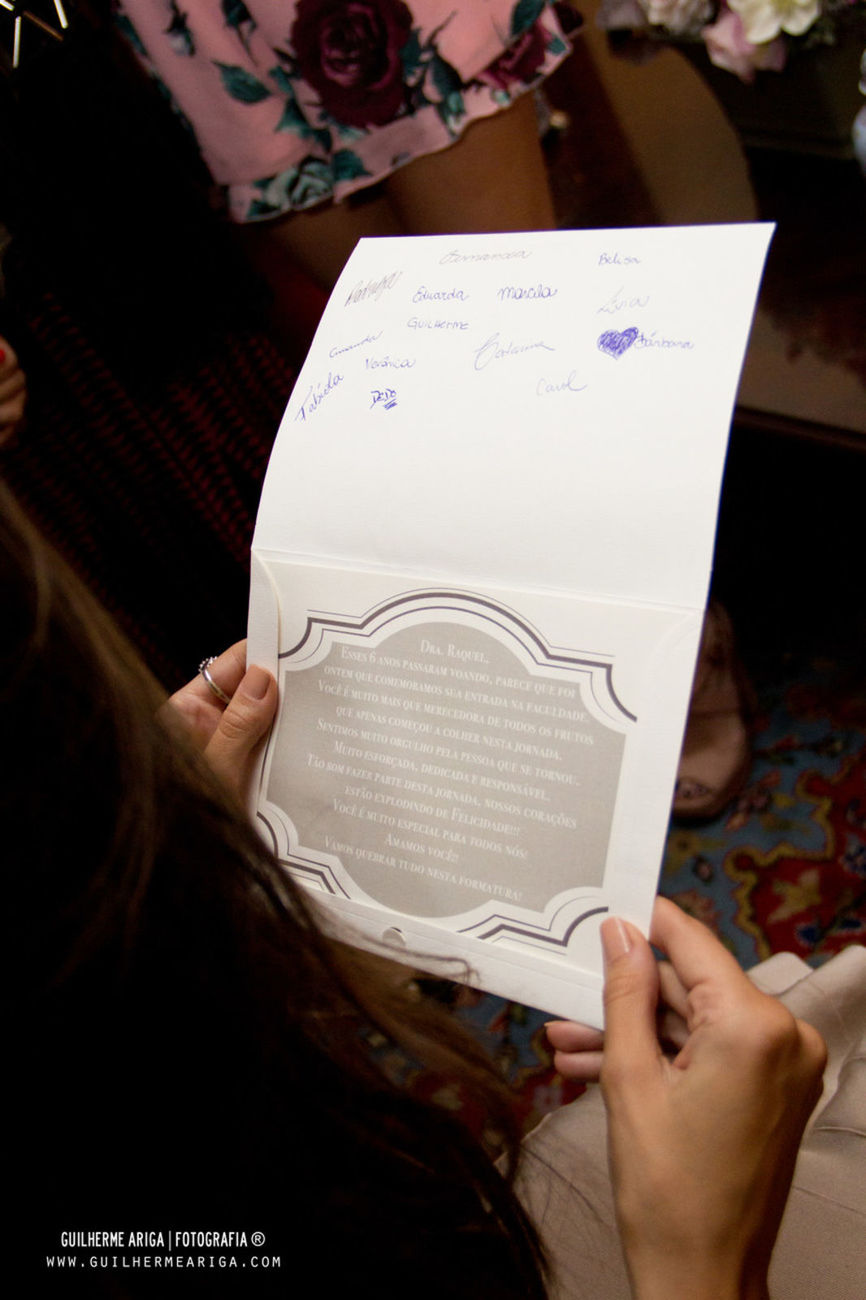 Fernanda
Belisa
Eduarda Marcela Lívia
GUILHERME
Amanda Verônica Bárbara
Fabíola DEDO Carol
DRA. RAQUEL,
ESSES 6 ANOS PASSARAM VOANDO, PARECE QUE FOI
ONTEM QUE COMEMORAMOS SUA ENTRADA NA FACULDADE.
VOCÊ É MUITO MAIS QUE MERECEDORA DE TODOS OS FRUTOS
QUE APENAS COMEÇOU A COLHER NESTA JORNADA.
SENTIMOS MUITO ORGULHO PELA PESSOA QUE SE TORNOU.
MUITO ESFORÇADA, DEDICADA E RESPONSÁVEL.
TÃO BOM FAZER PARTE DESTA JORNADA, NOSSOS CORAÇÕES
ESTÃO EXPLODINDO DE FELICIDADE!!!
VOCÊ É MUITO ESPECIAL PARA TODOS NÓS!
AMAMOS VOCÊ!!
VAMOS QUEBRAR TUDO NESTA FORMATURA!
GUILHERME ARIGA | FOTOGRAFIA ®
WWW.GUILHERMEARIGA.COM